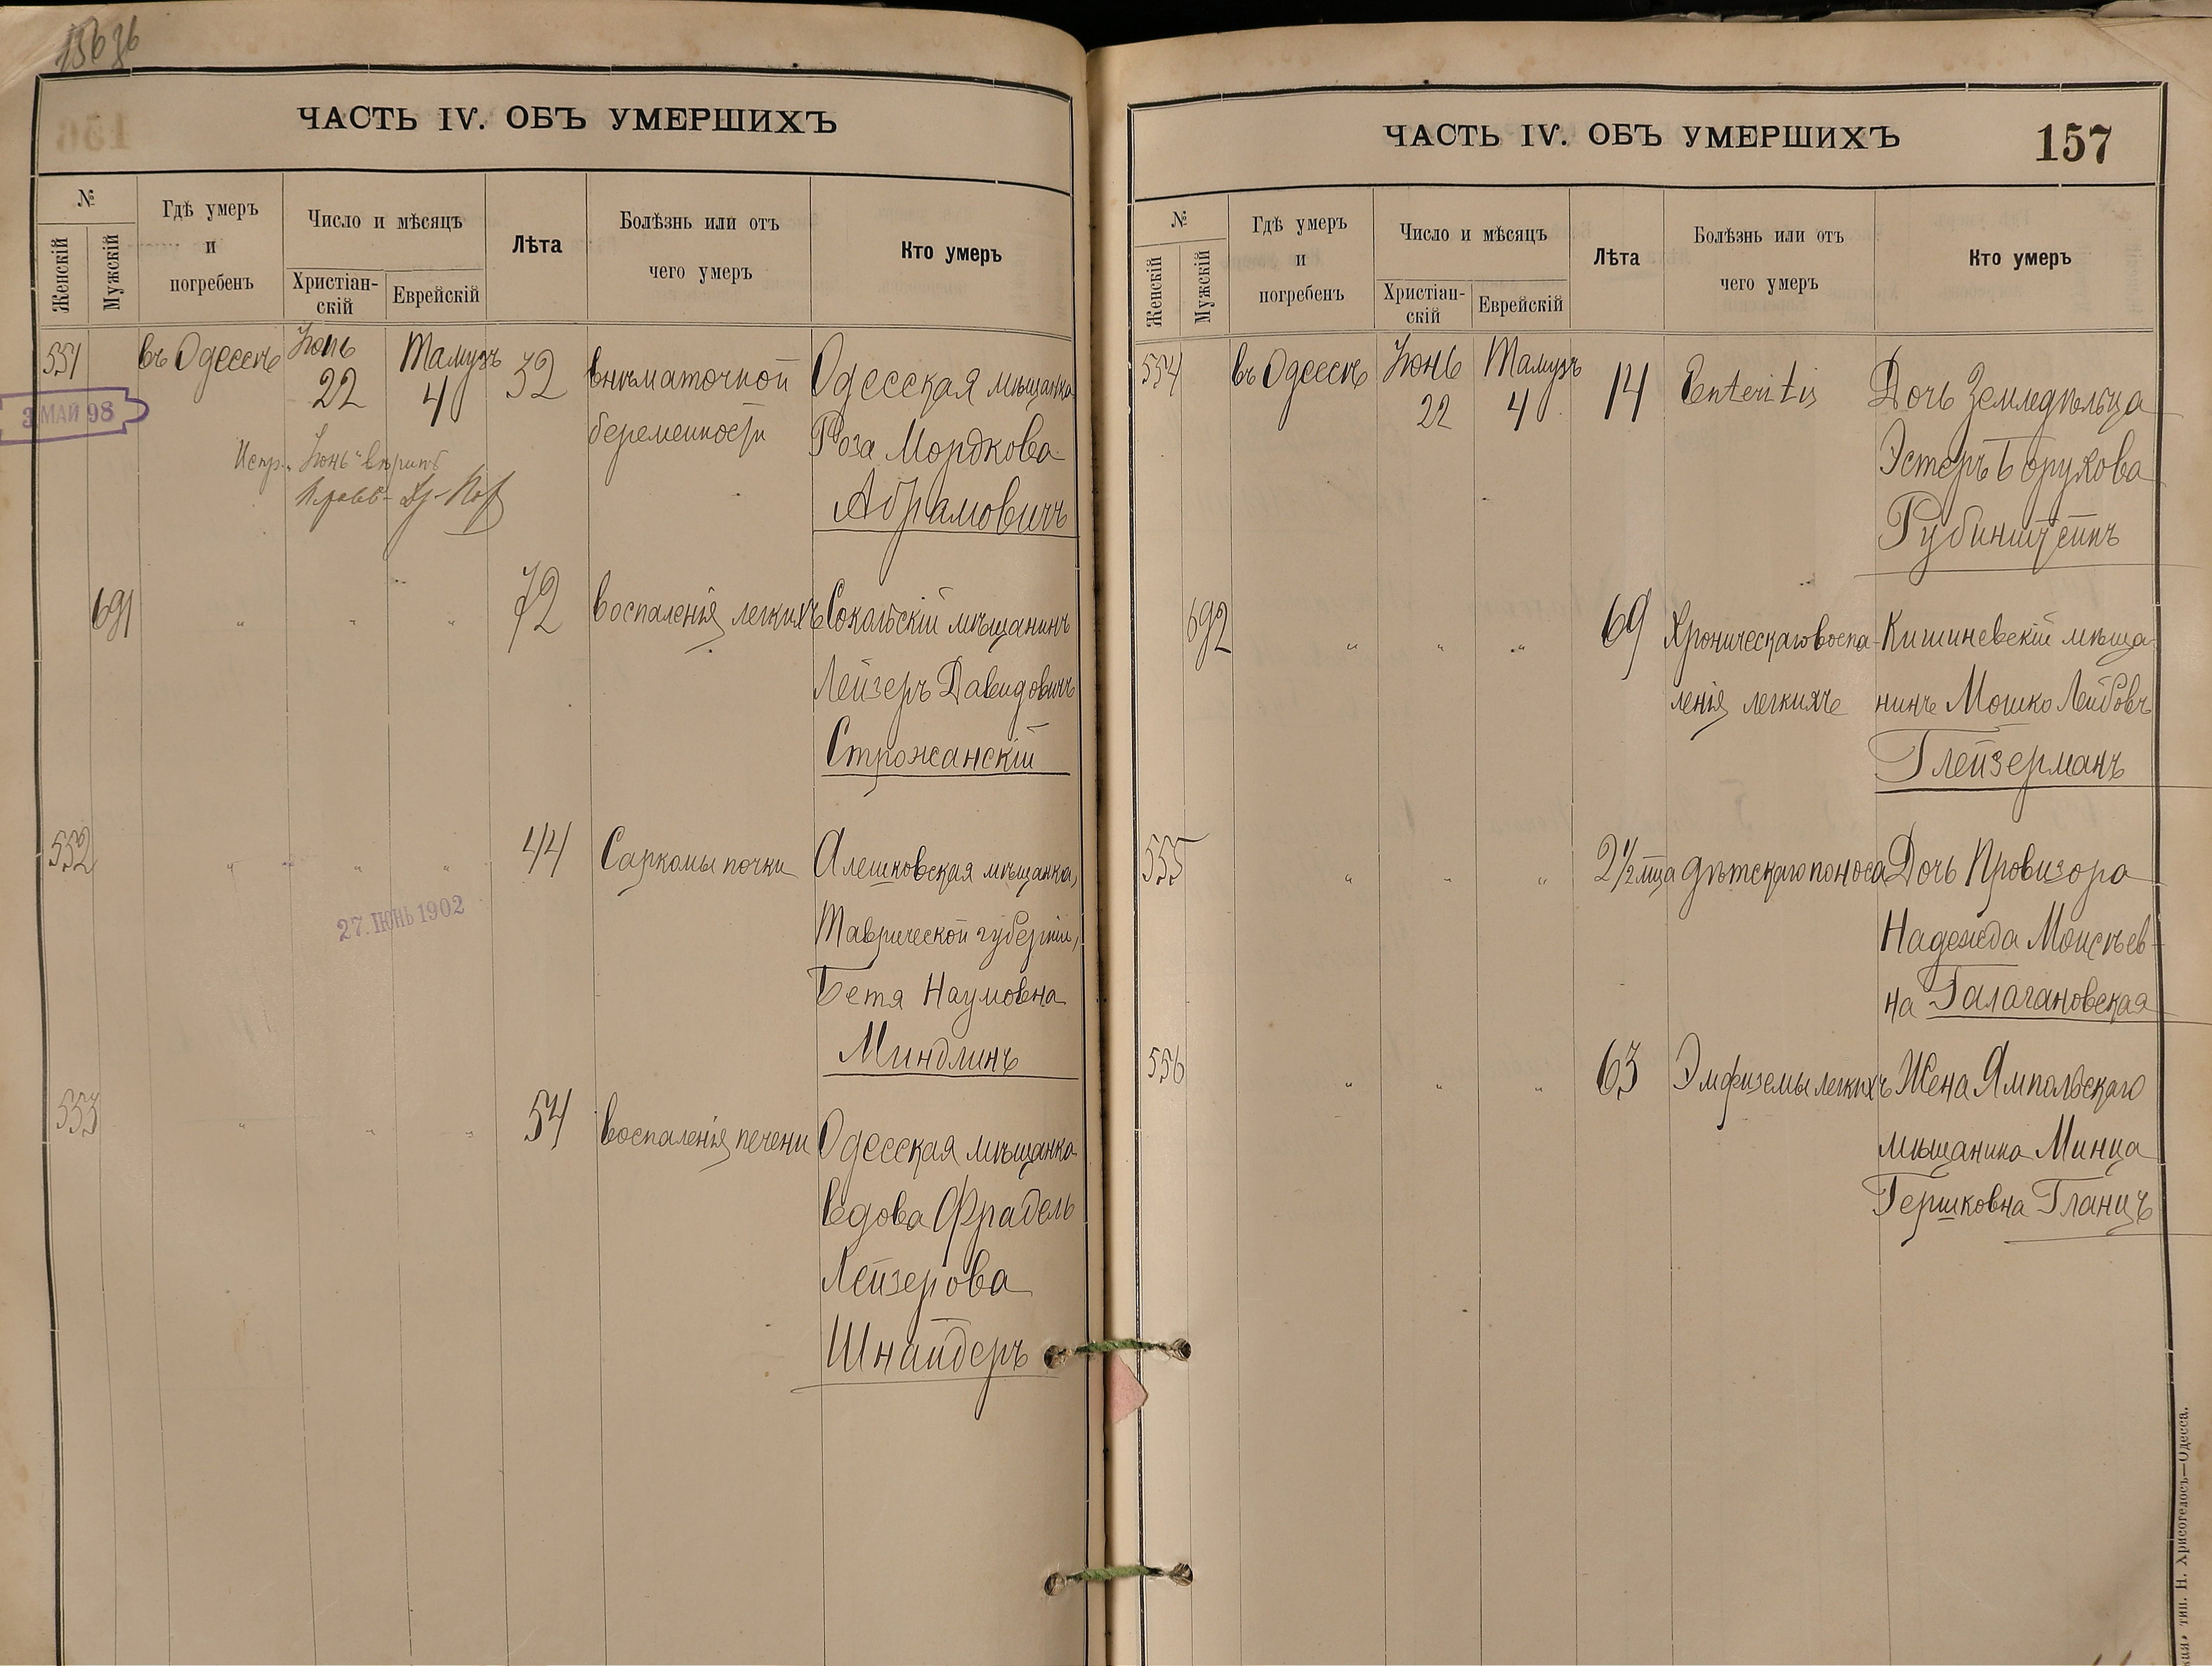 ЧАСТЬ IV. ОБЪ УМЕРШИХЪ
№
Женскій
Мужскій
Гдѣ умеръ
и
погребенъ
Число и мѣсяцъ
Христіан-
скій
Еврейскій
Лѣта
Болѣзнь или отъ
чего умеръ
Кто умеръ
551
въ Одессѣ
Іюнь
22
Тамузъ
4
32
внѣматочной
беременности
Одесская мѣщанка
Роза Мордкова
Абрамовичъ
3 МАЙ 98
Испр. „Іюнь" вѣрить
691
" " "
72
воспаленія легкихъ
Сокальскій мѣщанинъ
Лейзеръ Давидовичъ
Строжанскій
552
" " "
44
Саркомы почки
Алешковская мѣщанка,
Таврической губерніи,
Бетя Наумовна
Миндлинъ
27. ІЮНЬ 1902
553
" " "
54
воспаленія печени
Одесская мѣщанка
вдова Фрадель
Лейзерова
Шнайдеръ
ЧАСТЬ IV. ОБЪ УМЕРШИХЪ
157
№
Женскій
Мужскій
Гдѣ умеръ
и
погребенъ
Число и мѣсяцъ
Христіан-
скій
Еврейскій
Лѣта
Болѣзнь или отъ
чего умеръ
Кто умеръ
554
въ Одессѣ
Іюнь
22
Тамузъ
4
14
Enteritis
Дочь Земледѣльца
Эстеръ Борухова
Рубинштейнъ
692
" " "
69
Хроническаго воспа-
ленія легкихъ
Кишиневскій мѣща-
нинъ Мошко Лейбовъ
Глейзерманъ
555
" " "
2 1/2 мца
дѣтскаго поноса
Дочь Провизора
Надежда Моисѣев-
на Галагановская
556
" " "
63
Эмфиземы легкихъ
Жена Ямпольскаго
мѣщанина Минца
Гершковна Гланцъ
тип. Н. Хрисогелосъ—Одесса.